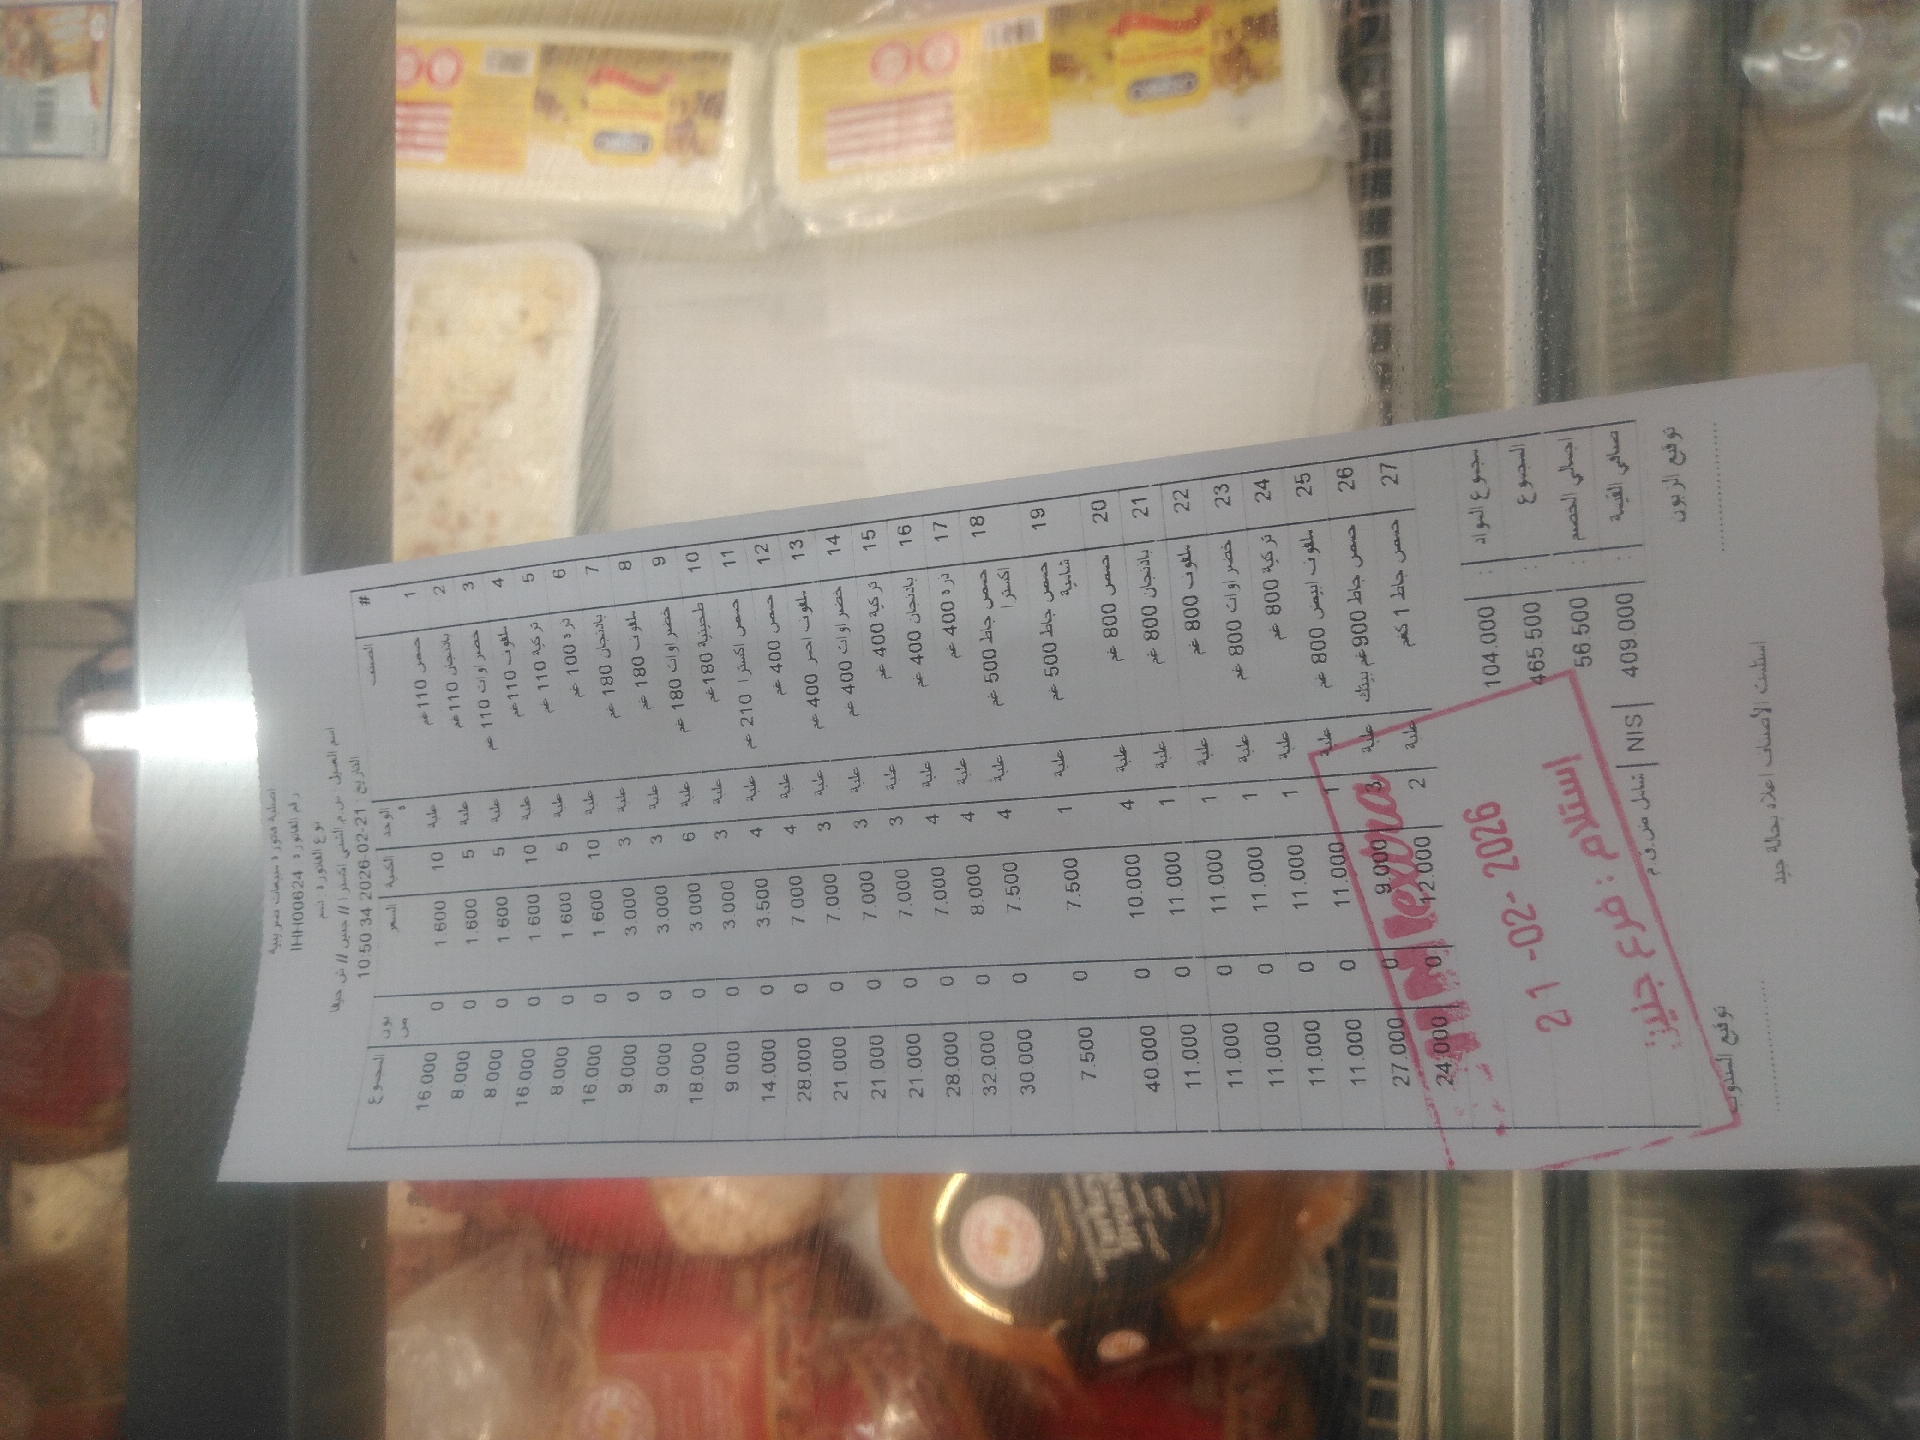 اصلية فاتورة مبيعات ضريبية
رقم الفاتورة IHH00624
نوع الفاتورة ذمم
التاريخ 2026-02-21 10:50:34
# الصنف الوحدة الكمية السعر بون ص المجموع
1 حمص 110غم علبة 10 1.600 0 16.000
2 باذنجان 110غم علبة 5 1.600 0 8.000
3 خضراوات 110 غم علبة 5 1.600 0 8.000
4 ملفوف 110 غم علبة 10 1.600 0 16.000
5 تركية 110 غم علبة 5 1.600 0 8.000
6 ذرة 100 غم علبة 10 1.600 0 16.000
7 باذنجان 180 غم علبة 3 3.000 0 9.000
8 ملفوف 180 غم علبة 3 3.000 0 9.000
9 خضراوات 180 غم علبة 6 3.000 0 18.000
10 طحينية 180 غم علبة 3 3.000 0 9.000
11 حمص اكسترا 210 غم علبة 4 3.500 0 14.000
12 حمص 400 غم علبة 4 7.000 0 28.000
13 ملفوف احمر 400 غم علبة 3 7.000 0 21.000
14 خضراوات 400 غم علبة 3 7.000 0 21.000
15 تركية 400 غم علبة 3 7.000 0 21.000
16 باذنجان 400 غم علبة 4 7.000 0 28.000
17 ذرة 400 غم علبة 4 8.000 0 32.000
18 حمص جاط 500 غم اكسترا علبة 4 7.500 0 30.000
19 حمص جاط 500 غم شامية علبة 1 7.500 0 7.500
20 حمص 800 غم علبة 4 10.000 0 40.000
21 باذنجان 800 غم علبة 1 11.000 0 11.000
22 ملفوف 800 غم علبة 1 11.000 0 11.000
23 خضراوات 800 غم علبة 1 11.000 0 11.000
24 تركية 800 غم علبة 1 11.000 0 11.000
25 ملفوف ابيض 800 غم علبة 1 11.000 0 11.000
26 حمص جاط 900غم علبة 3 9.000 0 27.000
27 حمص جاط 1 كغم علبة 2 12.000 0 24.000
مجموع المواد : 104.000
المجموع : 465.500
اجمالي الخصم : 56.500
صافي القيمة : 409.000 NIS شامل ض.ق.م
extra
21 -02- 2026
استلام : فرع جنين
توقيع الزبون
توقيع المندوب
استلمت الاصناف اعلاه بحالة جيد